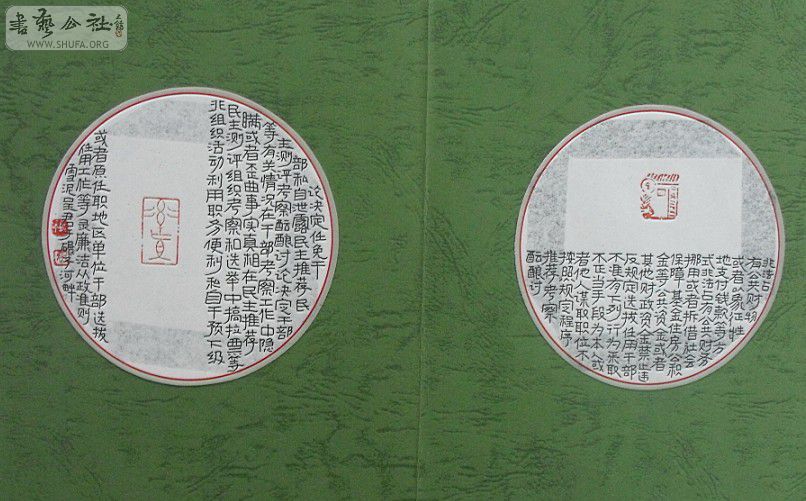 书艺公社
WWW.SHUFA.ORG
非法占
有公共财物
或者以象征性
地支付钱款等方
式非法占有公共财务
挪用或者拆借社会
保障基金住房公积
金等公共资金或者
其他财政资金禁止违
反规定选拔任用干部
不准有下列行为采取
不正当手段为本人或
者他人谋取职位不
按照规定程序
推荐考察
酝酿讨
论决定任免干
部私自泄露民主推荐民
主测评考察酝酿讨论决定干部
等有关情况在干部考察工作中隐
瞒或者歪曲事实真相在民主推荐
民主测评组织考察和选举中搞拉票等
非组织活动利用职务便利私自干预下级
或者原任职地区单位干部选拔
任用工作等节录廉洁从政准则
雪泥呈君子河畔